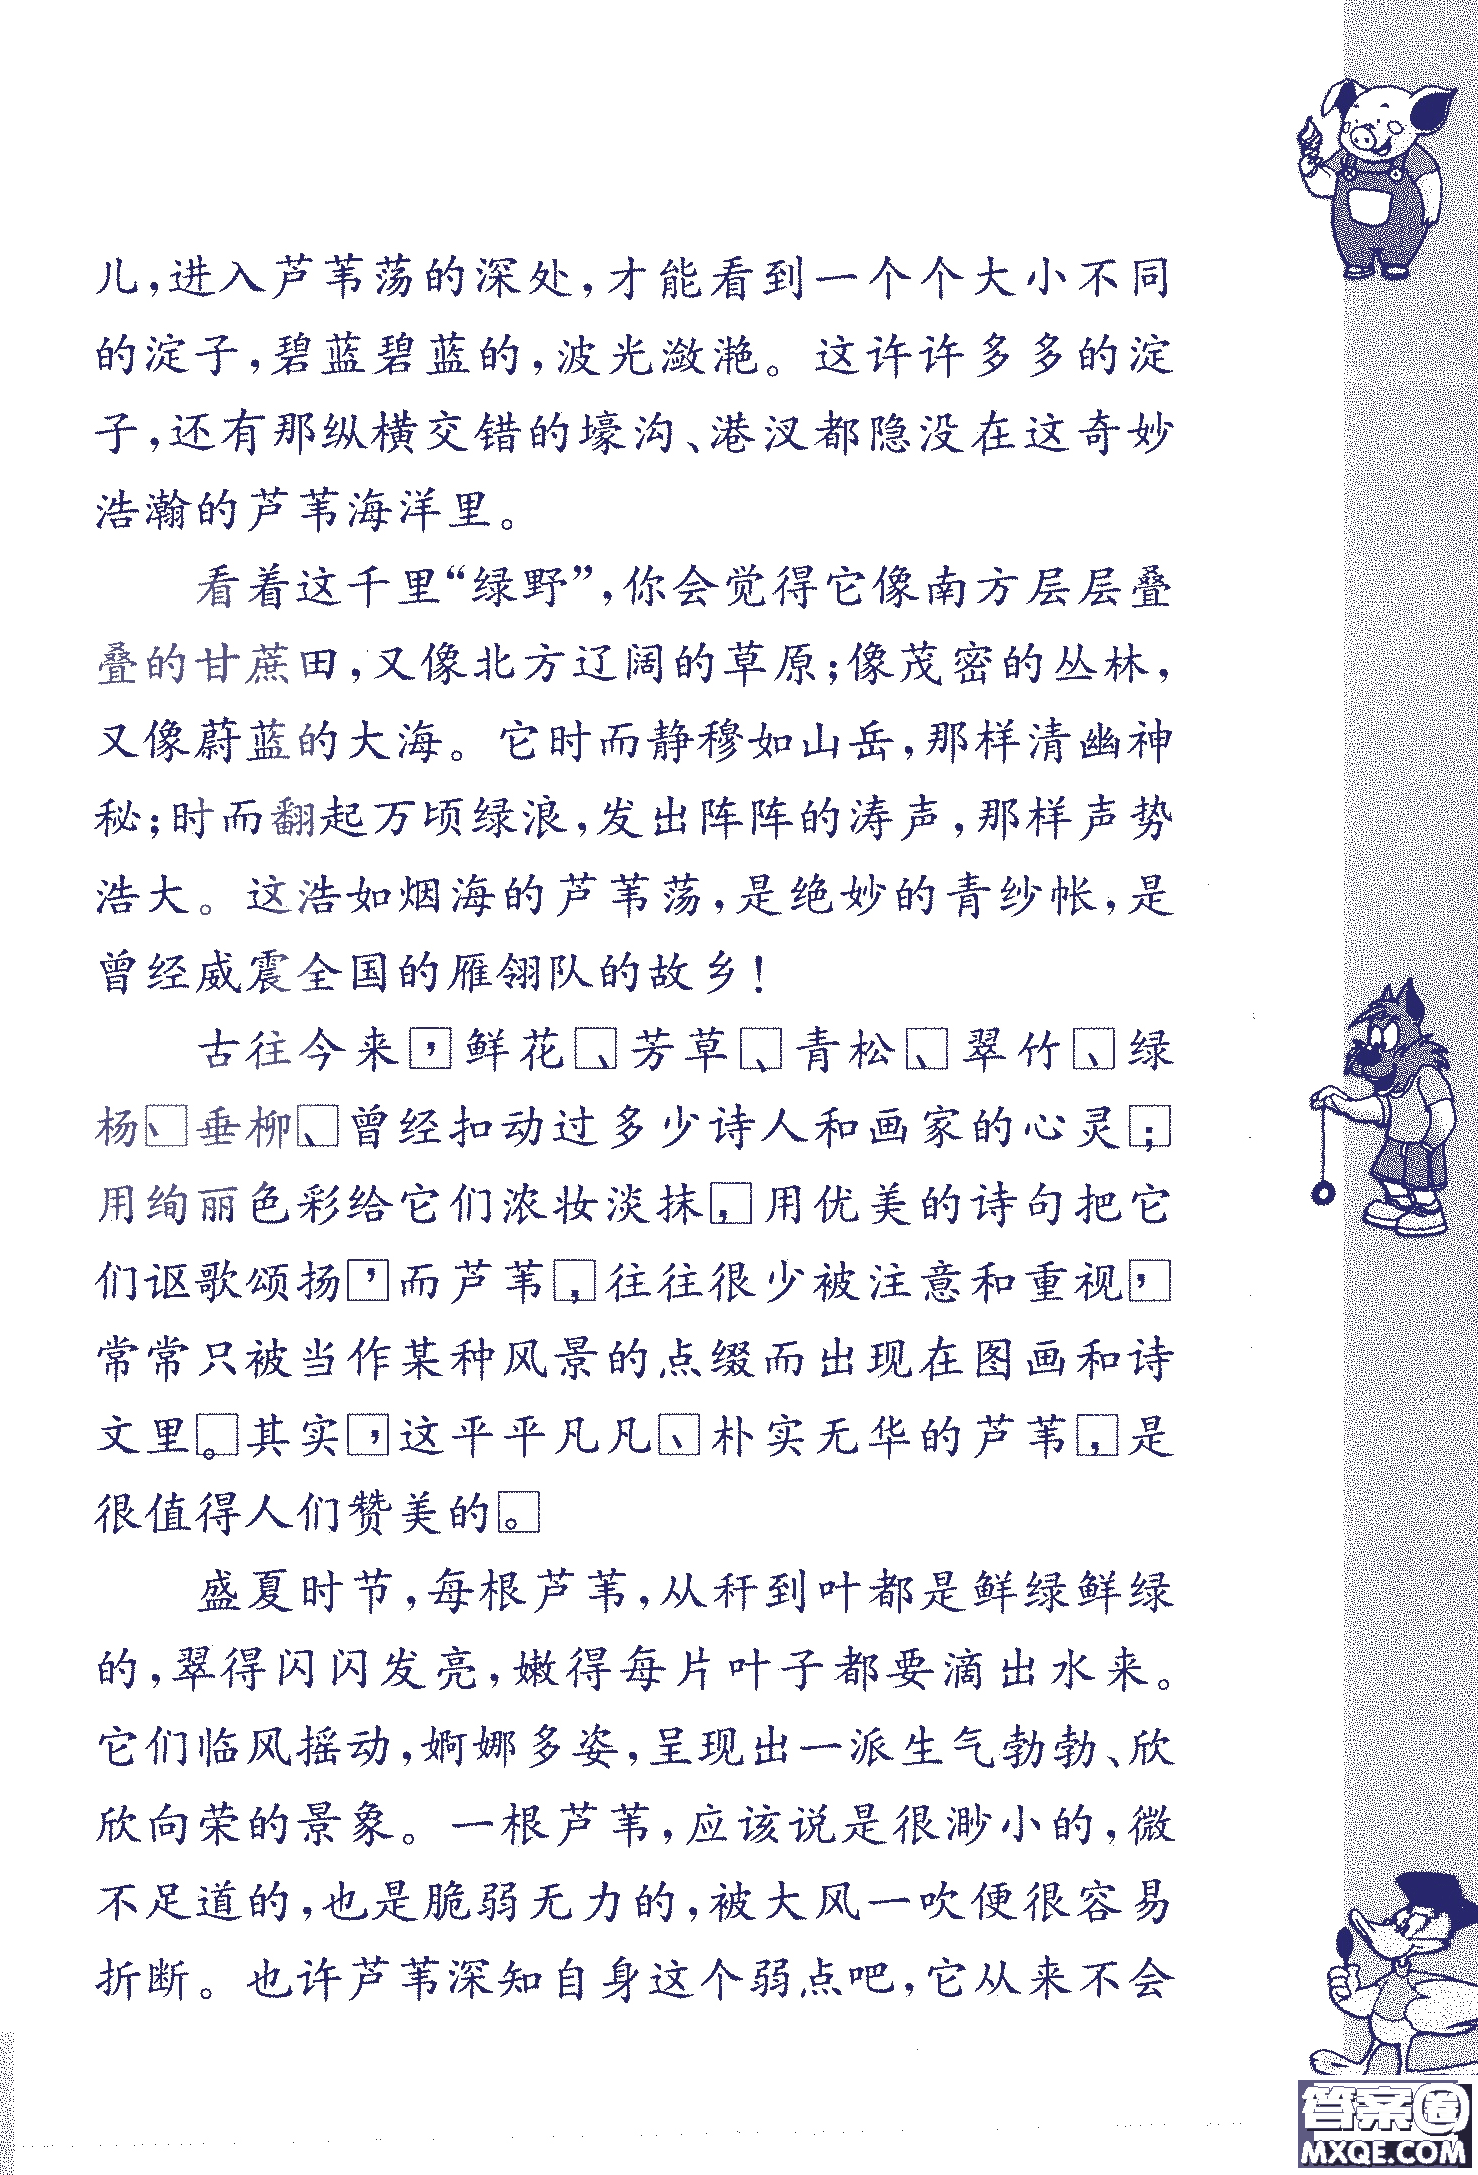 儿,进入芦苇荡的深处,才能看到一个个大小不同
的淀子,碧蓝碧蓝的,波光潋滟。这许许多多的淀
子,还有那纵横交错的壕沟、港汊都隐没在这奇妙
浩瀚的芦苇海洋里。
看着这千里“绿野”,你会觉得它像南方层层叠
叠的甘蔗田,又像北方辽阔的草原;像茂密的丛林,
又像蔚蓝的大海。它时而静穆如山岳,那样清幽神
秘;时而翻起万顷绿浪,发出阵阵的涛声,那样声势
浩大。这浩如烟海的芦苇荡,是绝妙的青纱帐,是
曾经威震全国的雁翎队的故乡!
古往今来,鲜花、芳草、青松、翠竹、绿
杨、垂柳、曾经扣动过多少诗人和画家的心灵;
用绚丽色彩给它们浓妆淡抹,用优美的诗句把它
们讴歌颂扬,而芦苇,往往很少被注意和重视,
常常只被当作某种风景的点缀而出现在图画和诗
文里。其实,这平平凡凡、朴实无华的芦苇,是
很值得人们赞美的。
盛夏时节,每根芦苇,从秆到叶都是鲜绿鲜绿
的,翠得闪闪发亮,嫩得每片叶子都要滴出水来。
它们临风摇动,婀娜多姿,呈现出一派生气勃勃、欣
欣向荣的景象。一根芦苇,应该说是很渺小的,微
不足道的,也是脆弱无力的,被大风一吹便很容易
折断。也许芦苇深知自身这个弱点吧,它从来不会
答案圈
MXQE.COM